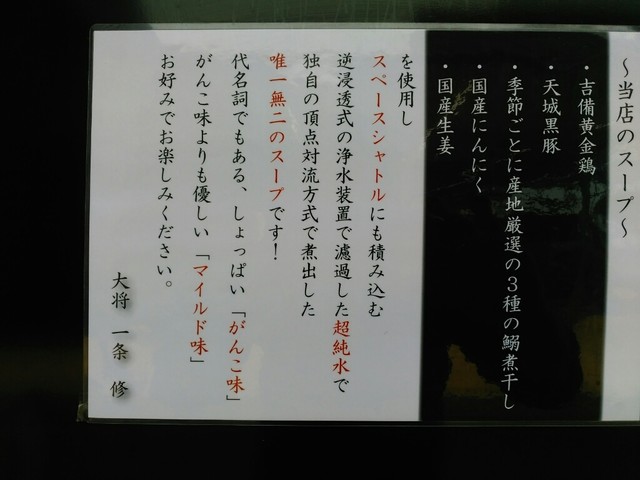 ～当店のスープ～
・吉備黄金鶏
・天城黒豚
・季節ごとに産地厳選の３種の鰯煮干し
・国産にんにく
・国産生姜
を使用し
スペースシャトルにも積み込む
逆浸透式の浄水装置で濾過した超純水で
独自の頂点対流方式で煮出した
唯一無二のスープです！
代名詞でもある、しょっぱい「がんこ味」
がんこ味よりも優しい「マイルド味」
お好みでお楽しみください。
大将 一条 修